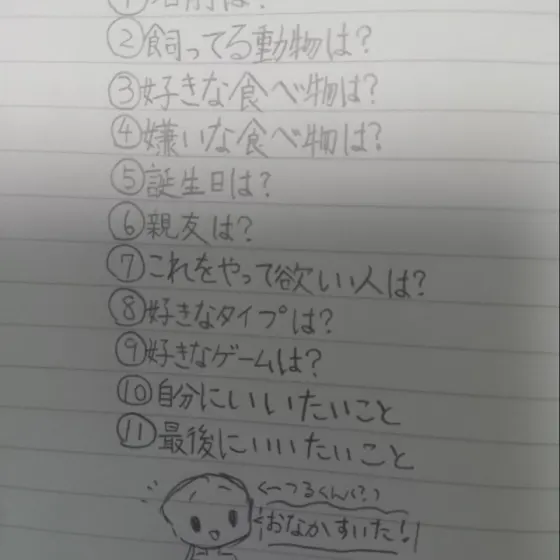 ①名前は?
②飼ってる動物は?
③好きな食べ物は?
④嫌いな食べ物は?
⑤誕生日は?
⑥親友は?
⑦これをやって欲しい人は?
⑧好きなタイプは?
⑨好きなゲームは?
⑩自分にいいたいこと
⑪最後にいいたいこと
←つるくん(?)
おなかすいた!